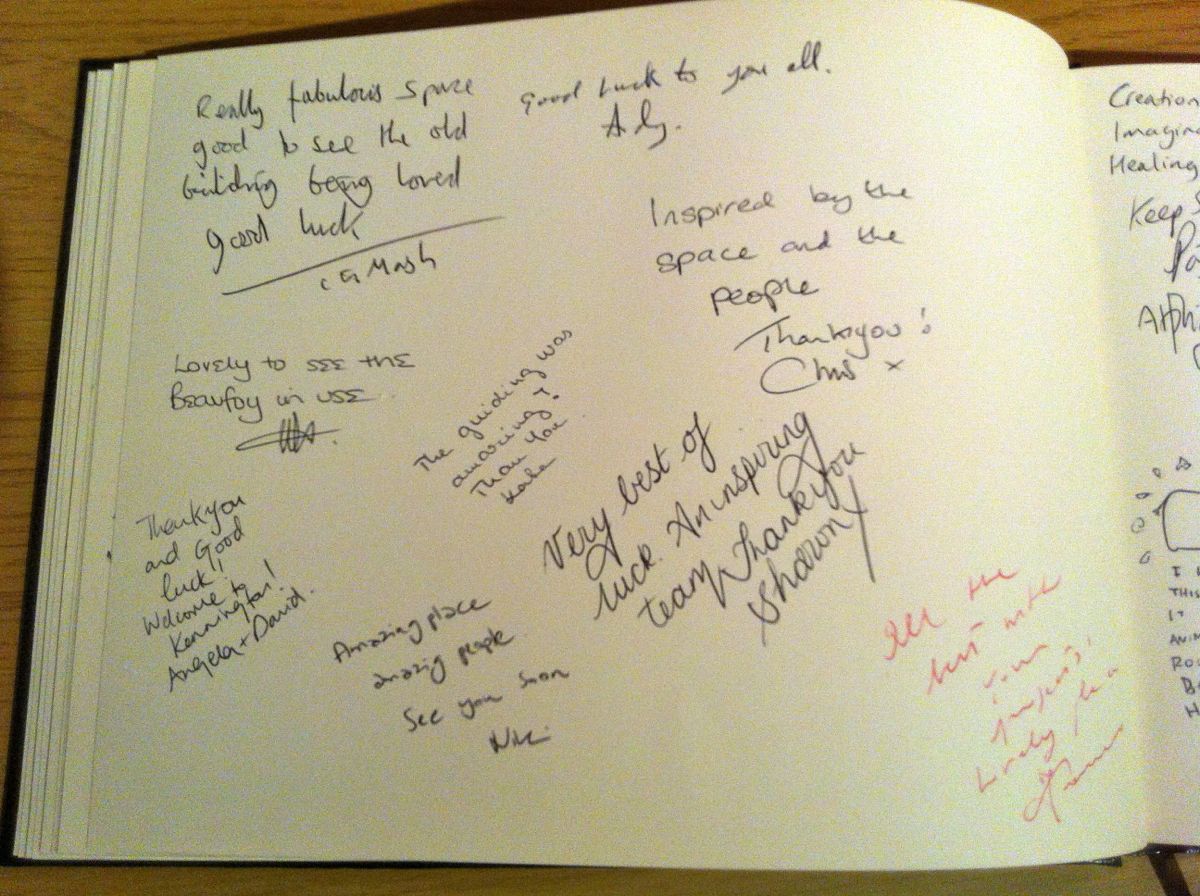 Really fabulous space
good to see the old
building being loved
good luck
Good Luck to you all.
Inspired by the
space and the
people
Thankyou!
Chris x
Lovely to see the
Beaufoy in use
The guiding was
amazing!
Than you
Very best of
luck. An inspiring
team Thankyou
Sharon x
Thankyou
and Good
luck!
Welcome to
Kennington!
Angela + David.
Amazing place
amazig people
See you soon
All the
best with
your
Lovely
Creation
Imagin
Healing
Keep
I
THIS
IT
ANIM
ROO
B
H